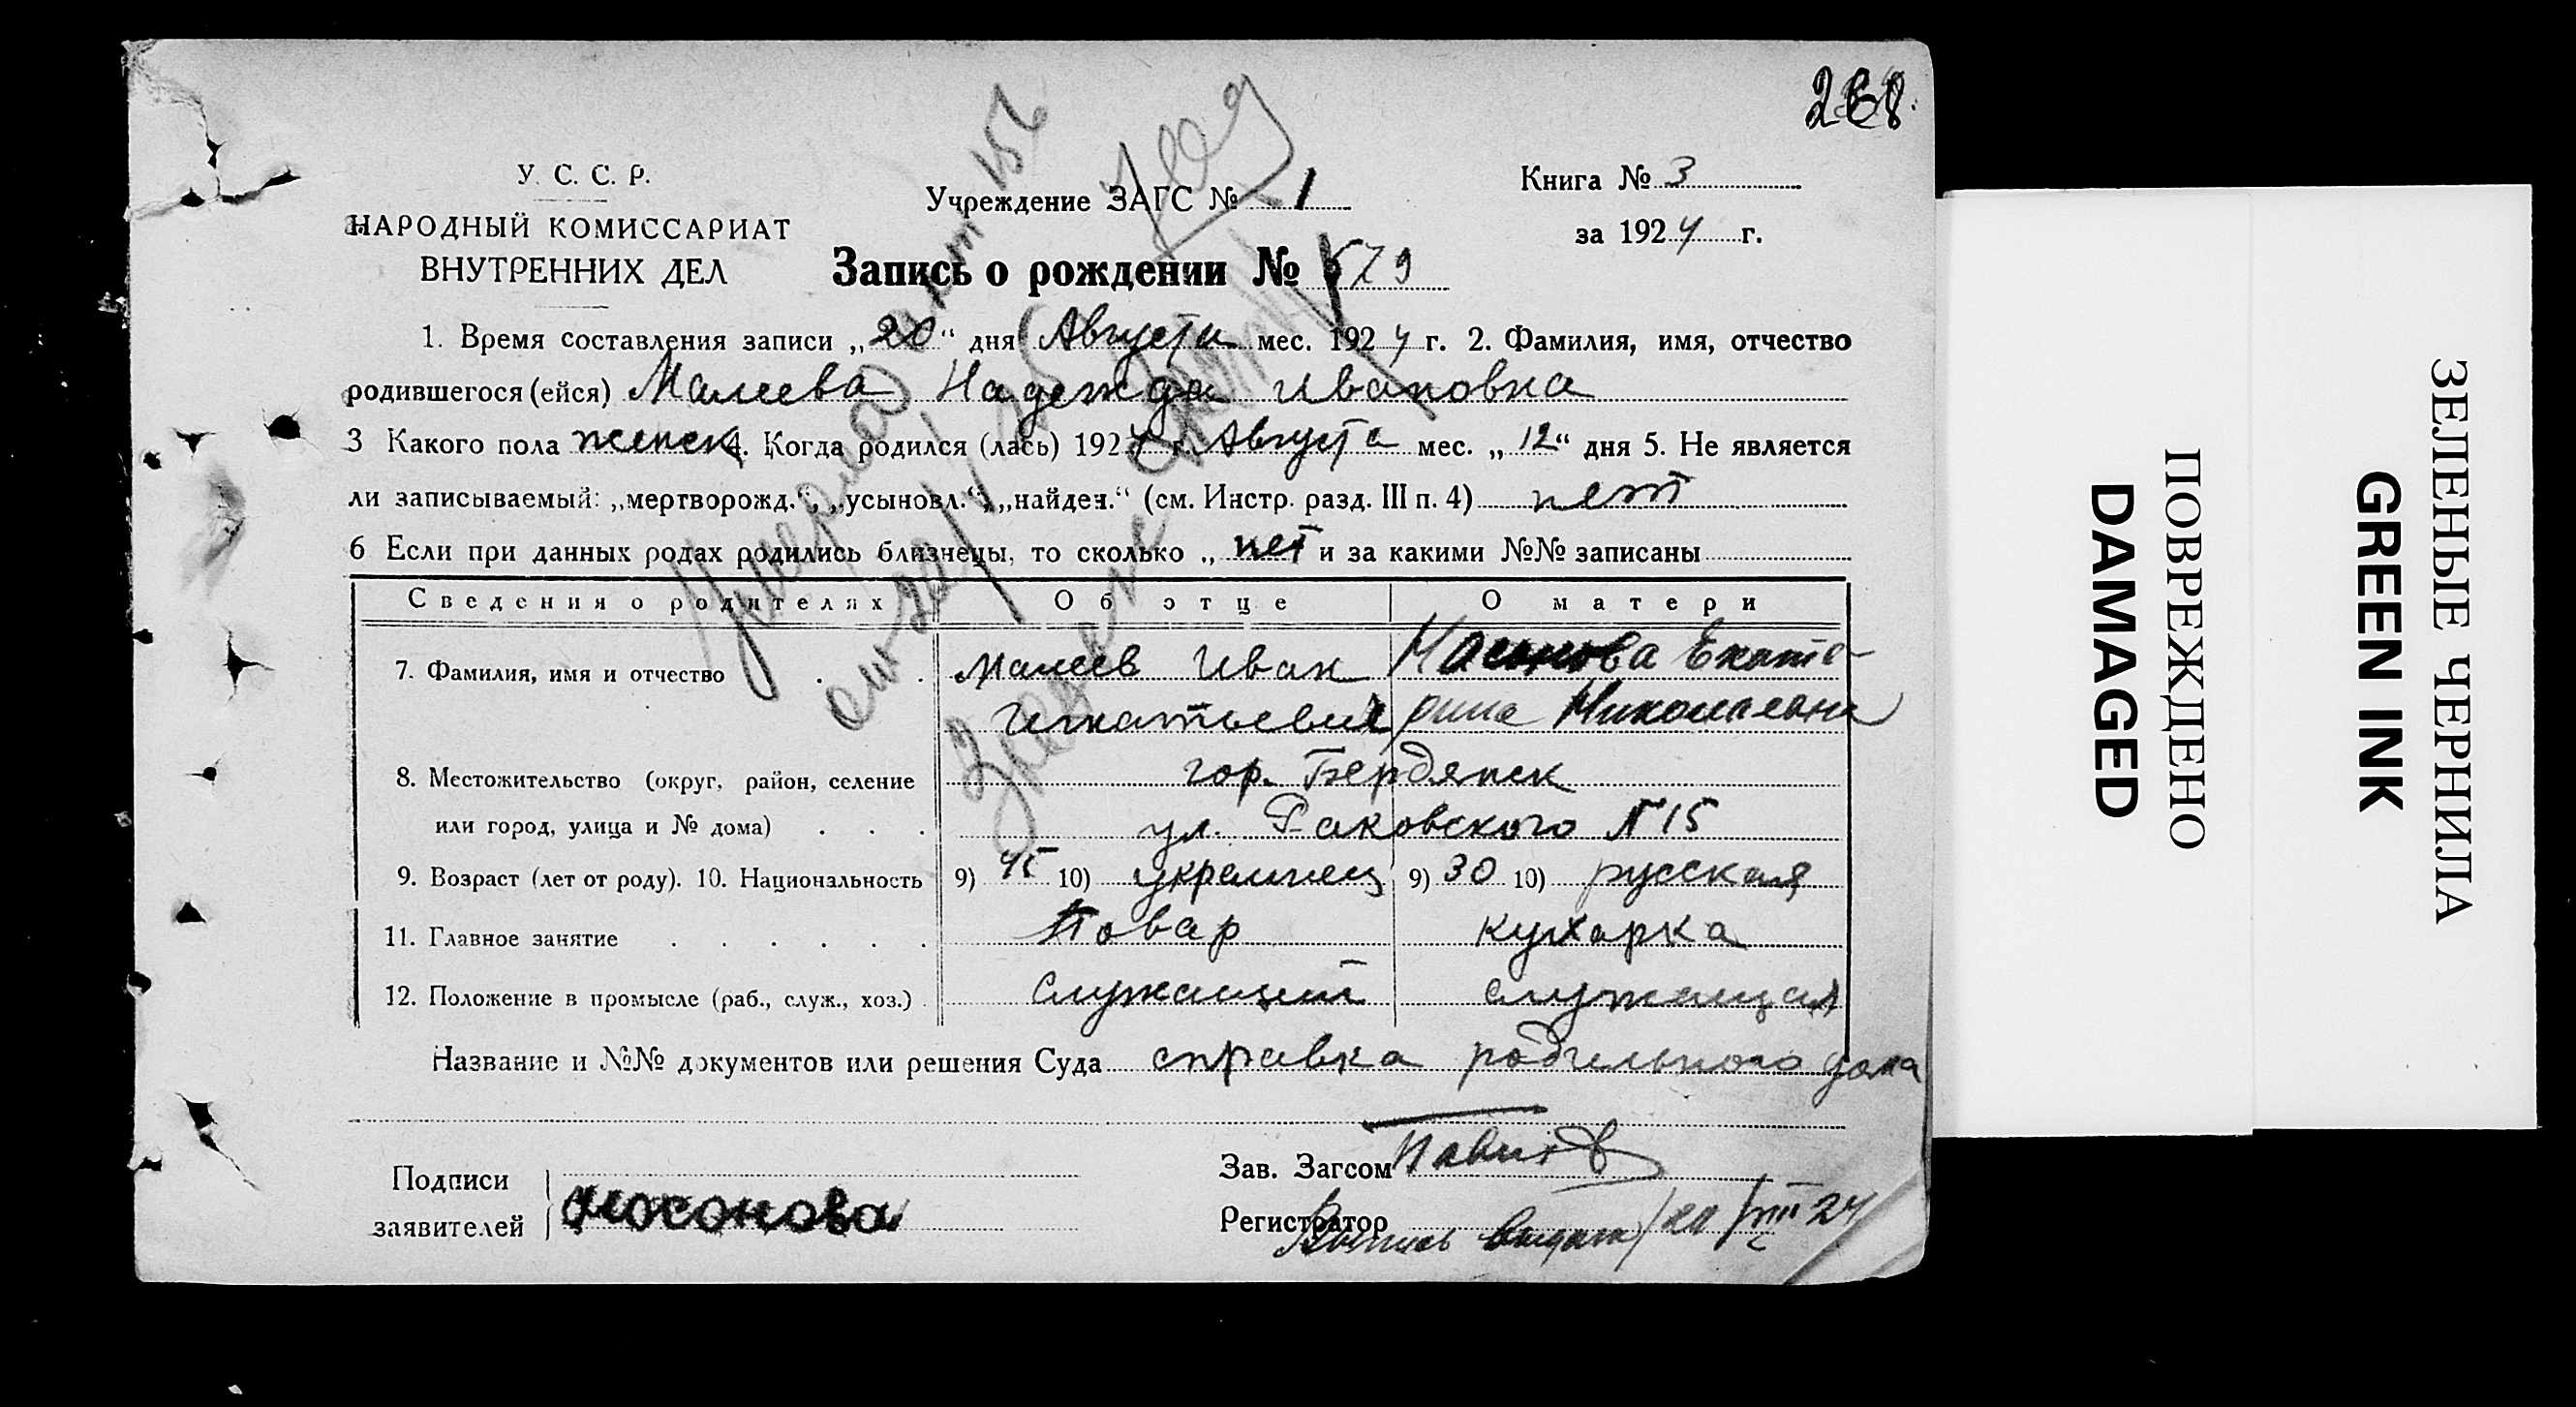 У. С. С. Р.
НАРОДНЫЙ КОМИССАРИАТ
ВНУТРЕННИХ ДЕЛ
Учреждение ЗАГС № 1
Книга № 3
за 1924 г.
Запись о рождении № 579
1. Время составления записи „20“ дня Августа мес. 1924 г. 2. Фамилия, имя, отчество
родившегося (ейся) Малеева Надежда Ивановна
3 Какого пола женск 4. Когда родился (лась) 1924 г. Августа мес. „12“ дня 5. Не является
ли записываемый: „мертворожд.“, „усыновл.“, „найден.“ (см. Инстр. разд. III п. 4) нет
6 Если при данных родах родились близнецы, то сколько „ нет и за какими №№ записаны
Сведения о родителях Об отце О матери
7. Фамилия, имя и отчество Малеев Иван Екате-
Игнатьевич рина Николаевна
8. Местожительство (округ, район, селение гор. Бердянск
или город, улица и № дома) ул. Раковского №15
9. Возраст (лет от роду). 10. Национальность 9) 45 10) украинец 9) 30 10) русская
11. Главное занятие Повар кухарка
12. Положение в промысле (раб., служ., хоз.) Служащий служащая
Название и №№ документов или решения Суда справка родильного дома
Подписи
заявителей Мосонова
Зав. Загсом
Регистратор
Выпись выдана 20/VIII 24
Умерла акт 156
ЗЕЛЕНЫЕ ЧЕРНИЛА
GREEN INK
ПОВРЕЖДЕНО
DAMAGED